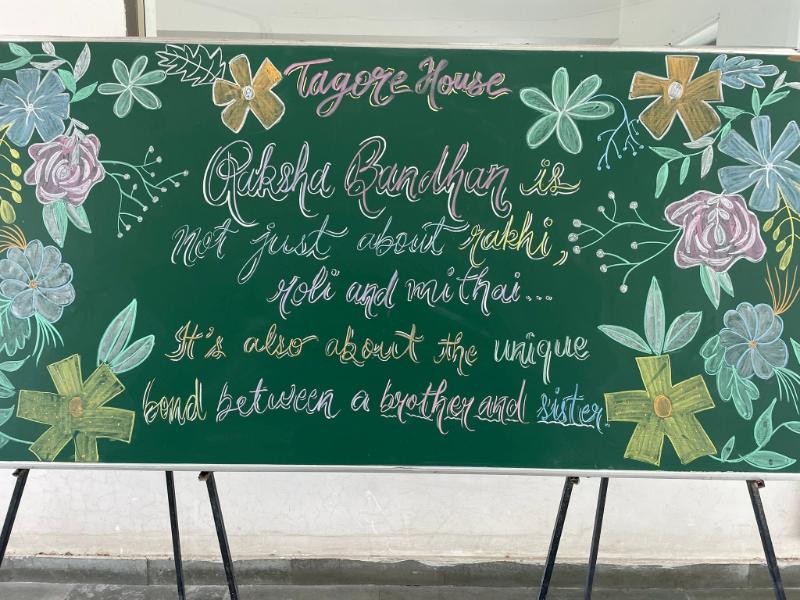 Tagore House
Raksha Bandhan is
not just about rakhi,
roli and mithai...
It's also about the unique
bond between a brother and sister.